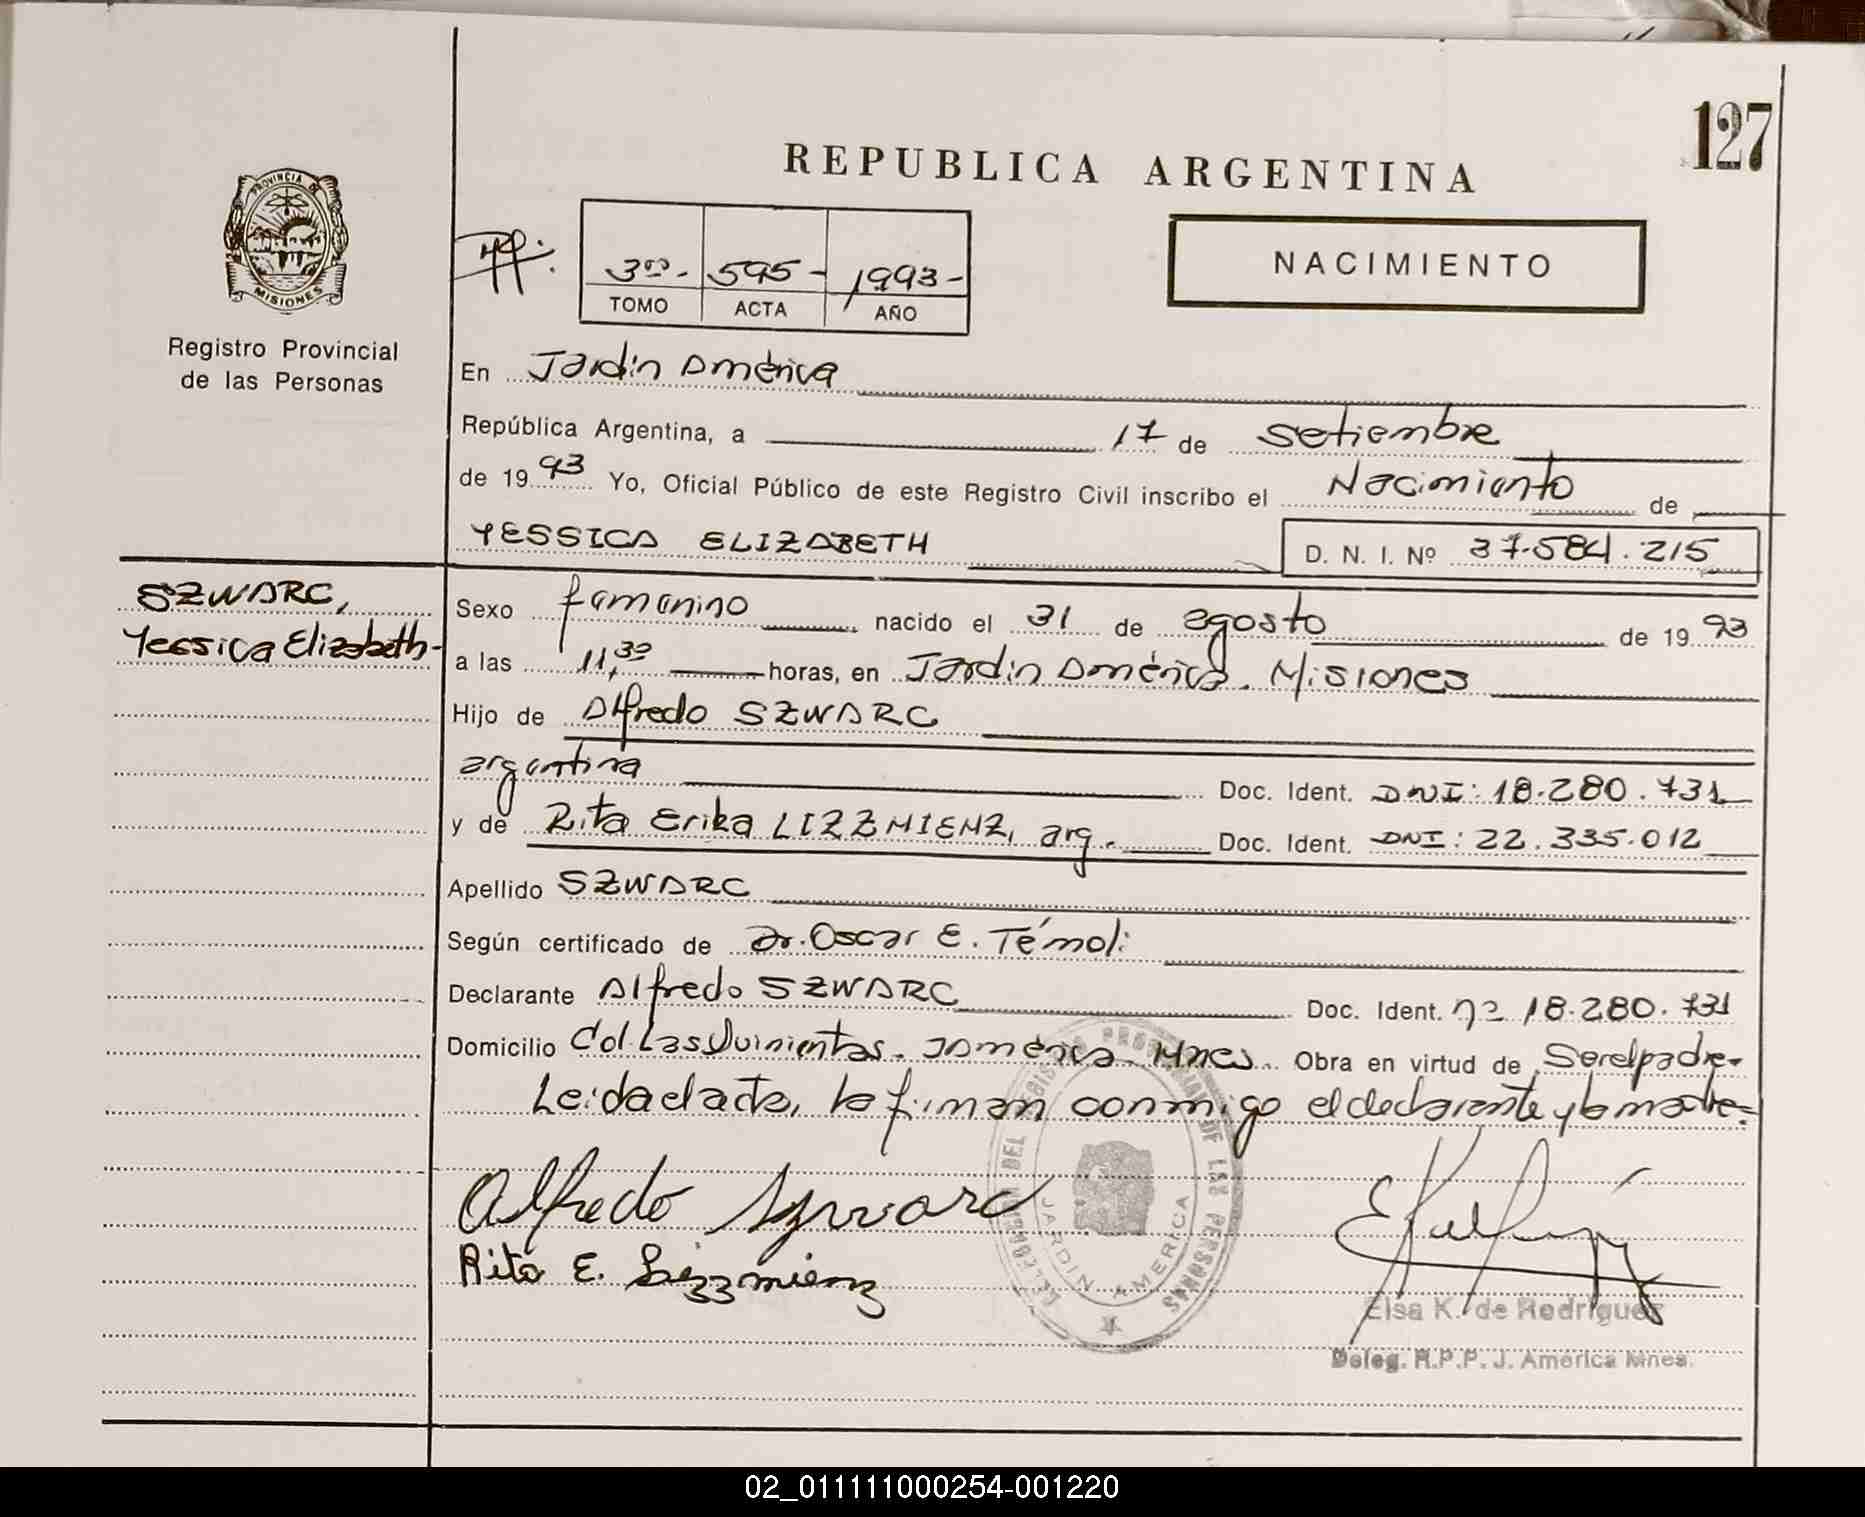 127
REPUBLICA ARGENTINA
PROVINCIA DE
MISIONES
Registro Provincial
de las Personas
3ro.- 595- 1993-
TOMO ACTA AÑO
NACIMIENTO
En Jardín América
República Argentina, a 17 de Setiembre
de 1993 Yo, Oficial Público de este Registro Civil inscribo el Nacimiento de
YESSICA ELIZABETH D. N. I. Nº 37.584.215
SZWARC,
Yessica Elizabeth-
Sexo femenino nacido el 31 de agosto de 1993
a las 11,30 horas, en Jardín América. Misiones
Hijo de Alfredo SZWARC
argentina Doc. Ident. DNI: 18.280.731
y de Rita Erika LIZZMIENZ, arg. Doc. Ident. DNI: 22.335.012
Apellido SZWARC
Según certificado de Dr. Oscar E. Témoli
Declarante Alfredo SZWARC Doc. Ident. nº 18.280.731
Domicilio Col. Las Quinientas. J América. Mnes. Obra en virtud de Ser el padre-
Leida el acta, la firman conmigo el declarante y la madre=
Alfredo Szwarc
Rita E. Lizzmienz
DEL REGISTRO PROVINCIAL DE LAS PERSONAS
JARDIN AMERICA
Elsa K. de Rodriguez
Deleg. R.P.P. J. América Mnes.
02_011111000254-001220